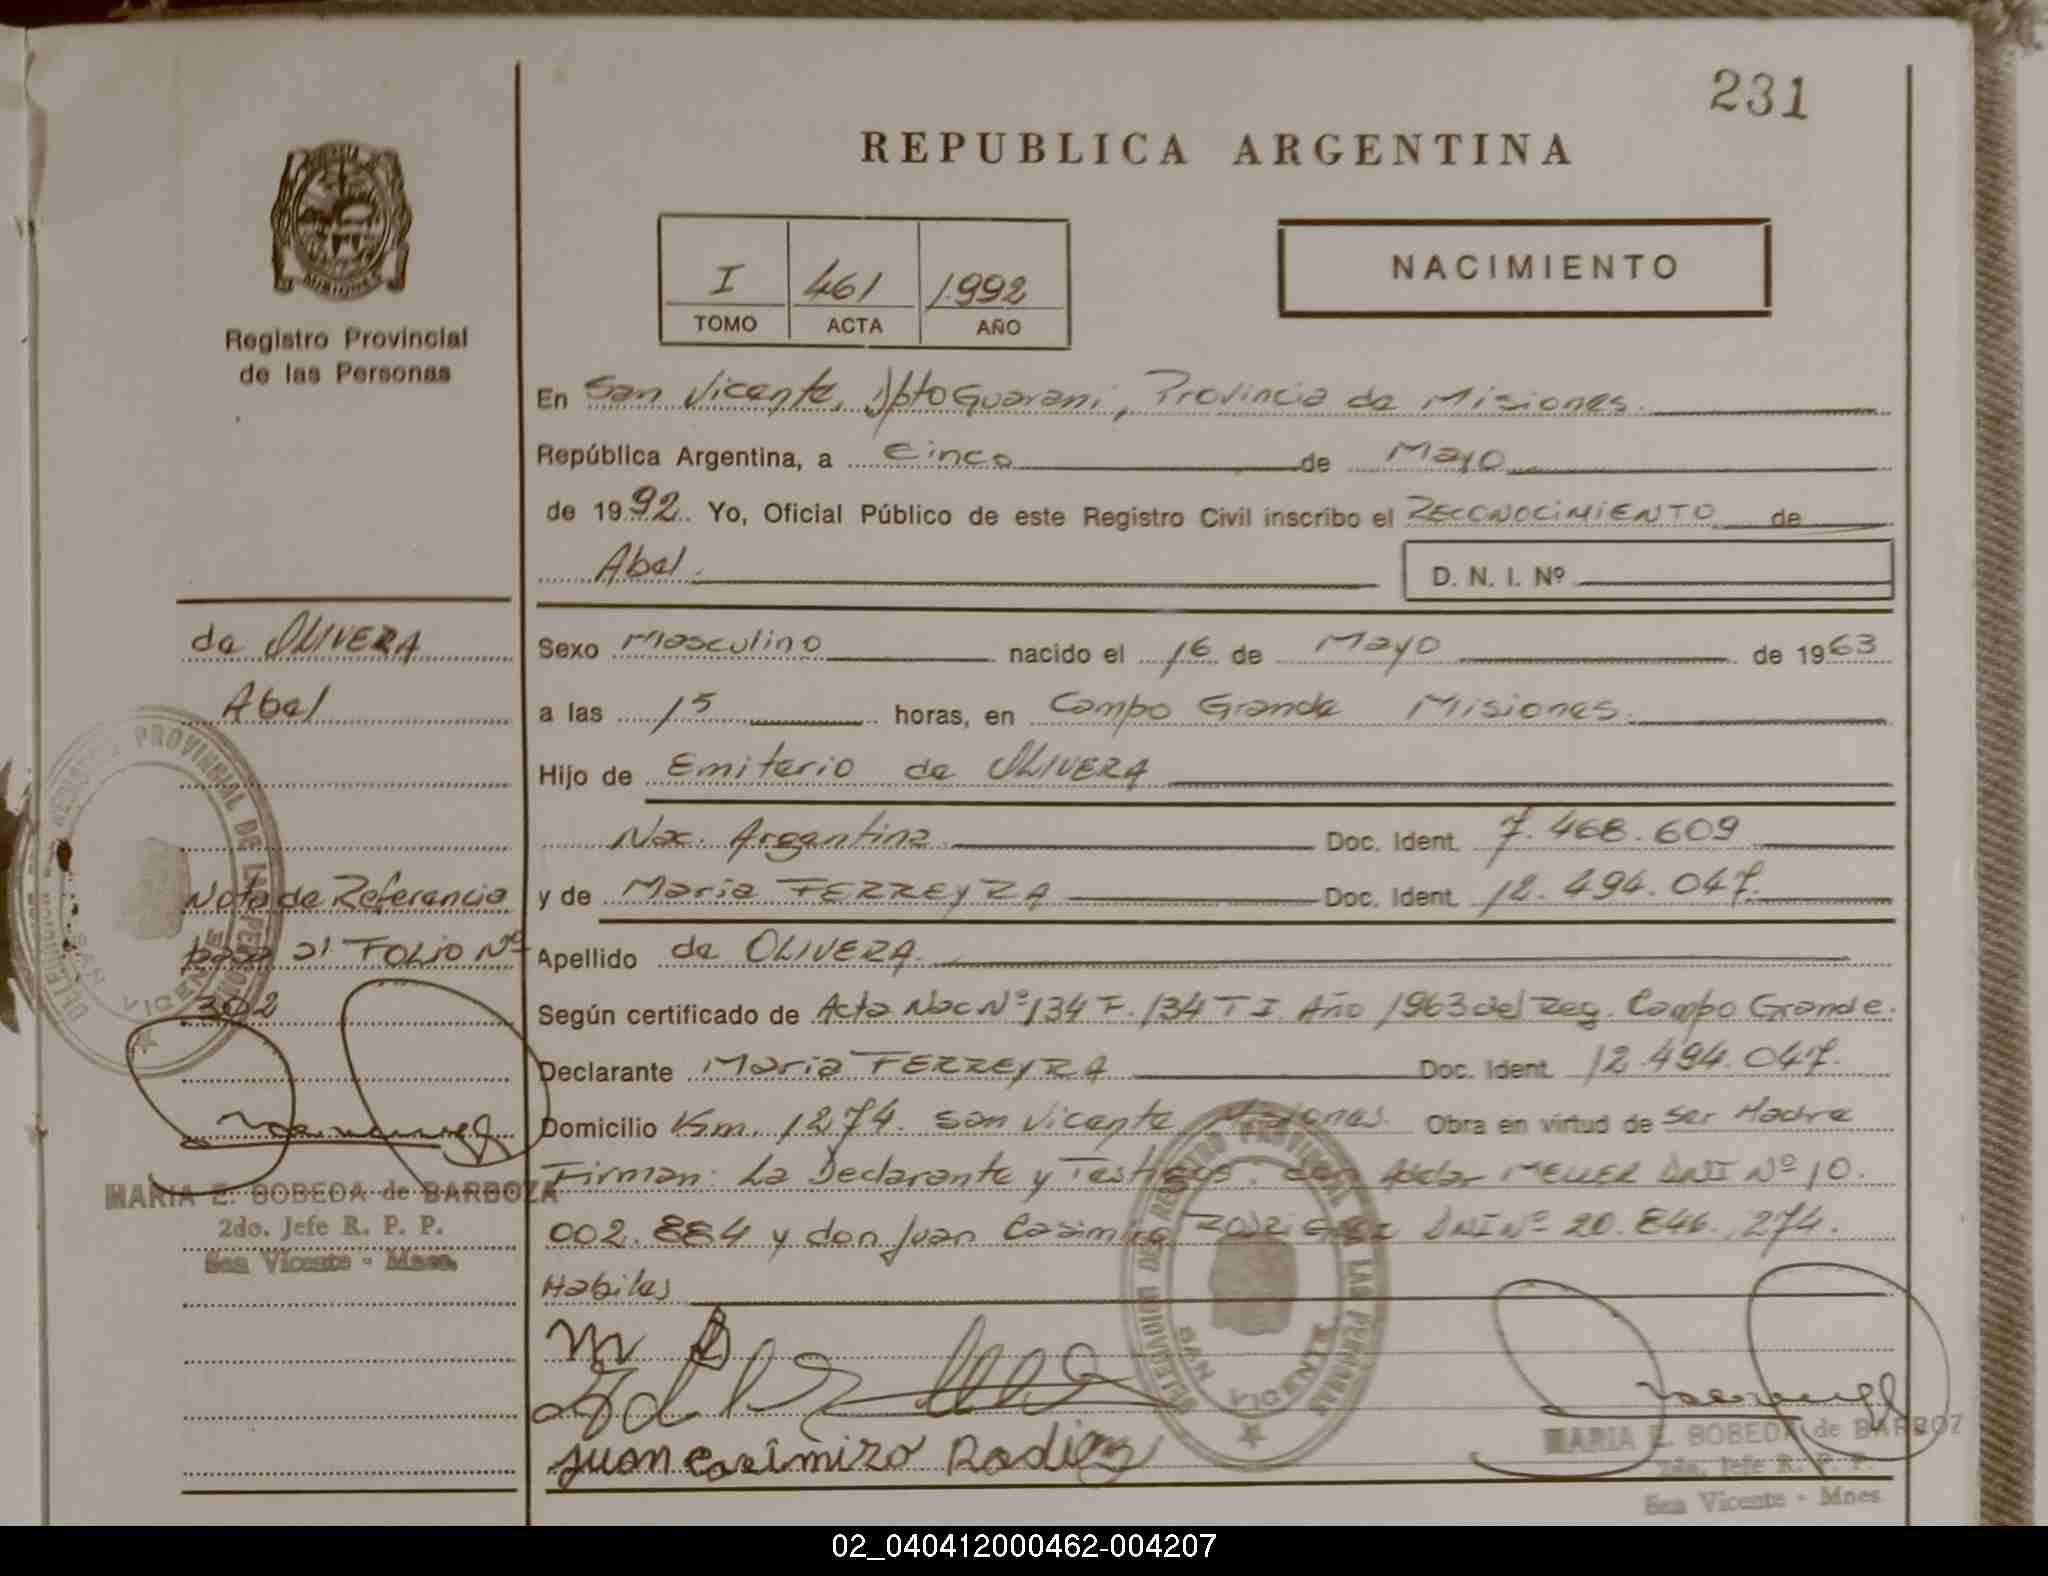 231
REPUBLICA ARGENTINA
Registro Provincial
de las Personas
I 461 1992
TOMO ACTA AÑO
NACIMIENTO
En San Vicente, Dpto Guarani, Provincia de Misiones.
República Argentina, a Cinco de Mayo
de 1992. Yo, Oficial Público de este Registro Civil inscribo el RECONOCIMIENTO de
Abel.
D. N. I. Nº
de OLIVERA
Abel
Nota de Referencia
pasa al FOLIO Nº
302
MARIA E. BOBEDA de BARBOZA
2do. Jefe R. P. P.
San Vicente - Mnes.
Sexo Masculino nacido el 16 de Mayo de 1963
a las 15 horas, en Campo Grande Misiones.
Hijo de Emiterio de OLIVERA
Nac. Argentina Doc. Ident. 7.468.609
y de Maria FERREYRA Doc. Ident. 12.494.047.
Apellido de OLIVERA
Según certificado de Acta Nac Nº 134 F. 134 T I. Año 1963 del Reg. Campo Grande.
Declarante Maria FERREYRA Doc. Ident. 12.494.047.
Domicilio Km. 1274. San Vicente Misiones. Obra en virtud de ser Madre
Firman: La Declarante y Testigos: don MELLER DNI Nº 10.
002.884 y don Juan Casimiro DNI Nº 20.846.274.
Habiles
M
Juan Casimiro
PROVINCIAL DE LAS PERSONAS
SAN VICENTE
DELEGACION DEL REGISTRO PROVINCIAL DE LAS PERSONAS
SAN VICENTE
MARIA E. BOBEDA de BARBOZ
2do. Jefe R. P. P.
San Vicente - Mnes
02_040412000462-004207